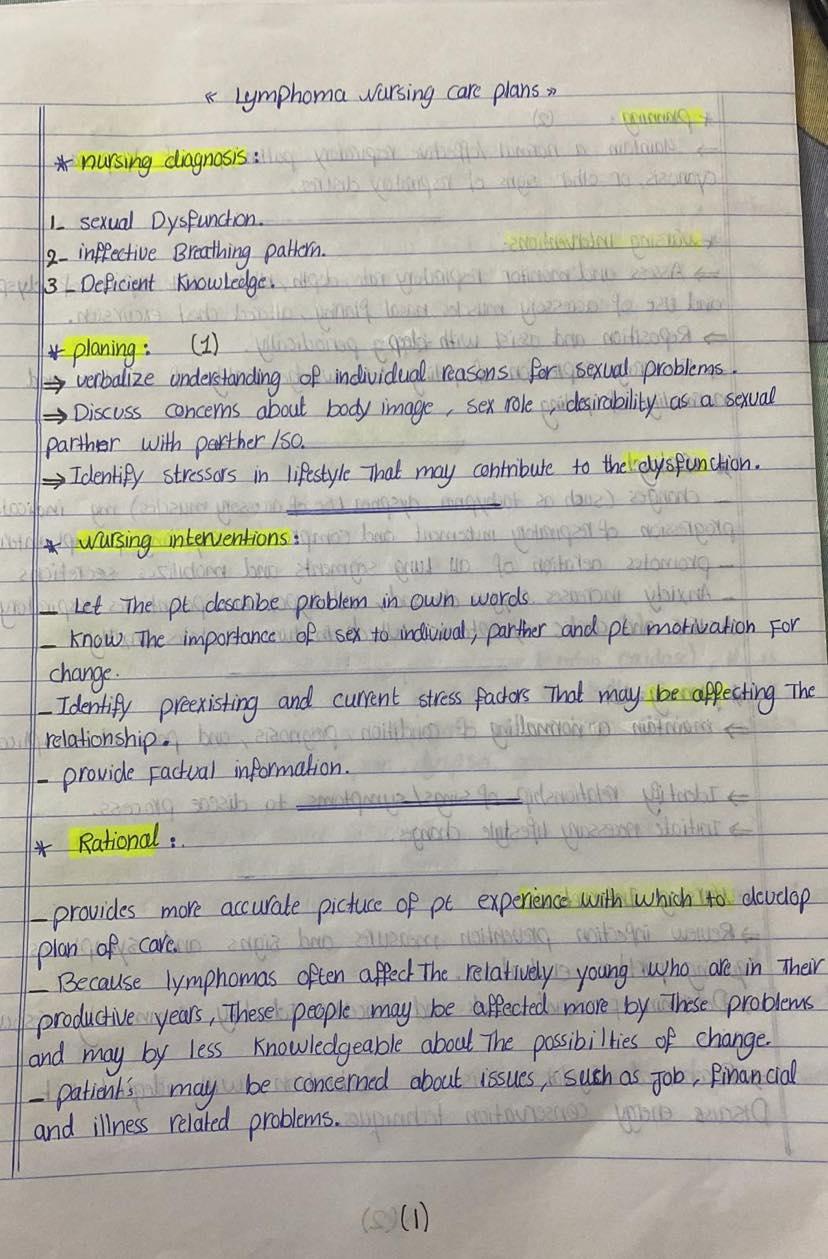 « Lymphoma Nursing care plans »
* nursing diagnosis :
1- sexual Dysfunction.
2- inffective Breathing pattern.
3- Deficient Knowledge.
* planing : (1)
⇒ verbalize understanding of individual reasons for sexual problems.
⇒ Discuss concerns about body image, sex role, desirability as a sexual
parther with parther /so.
⇒ Identify stressors in lifestyle That may contribute to the dysfunction.
* Nursing interventions :
- Let The pt describe problem in own words
- Know The importance of sex to indiviual, parther and pt motivation For
change.
- Identify preexisting and current stress factors That may be affecting The
relationship.
- provide Factual information.
* Rational :
- provides more accurate picture of pt experience with which to develop
plan of care.
- Because lymphomas often affect The relatively young who are in Their
productive years, These people may be affected more by These problems
and may by less Knowledgeable about The possibilties of change.
- patient's may be concerned about issues, such as Job, financial
and illness related problems.
(1)